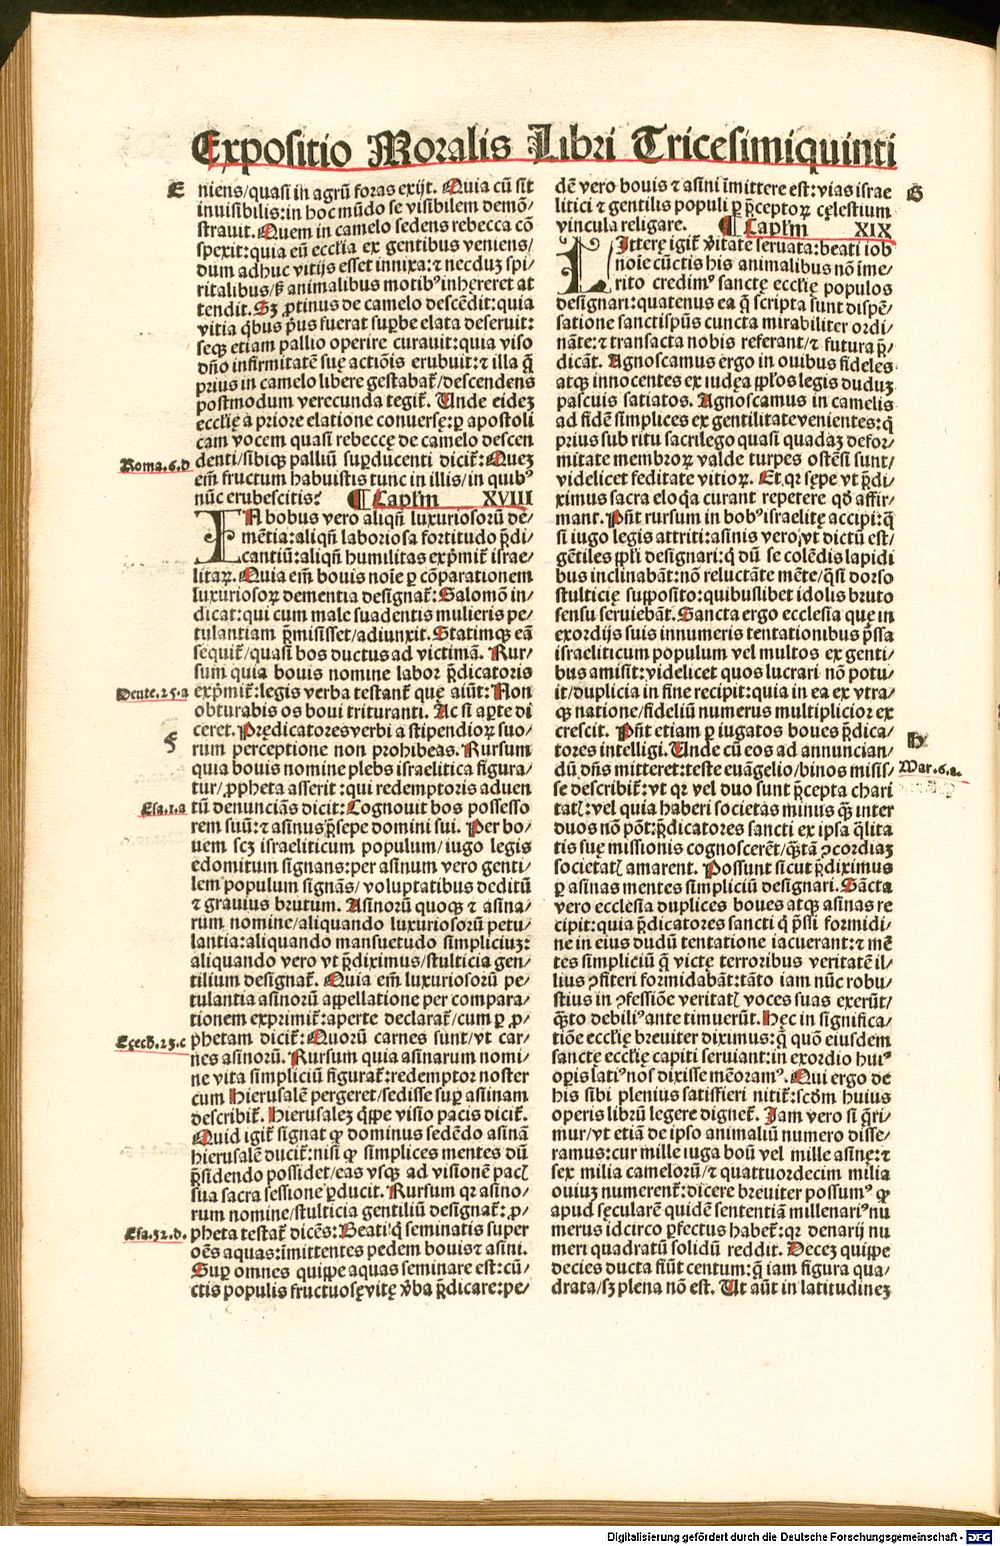 Expositio Moralis Libri Tricesimiquinti
E
niens/quasi in agrū foras exijt. Quia cū sit
inuisibilis:in hoc mūdo se visibilem demō/
strauit. Quem in camelo sedens rebecca cō
spexit:quia eū eccɫia ex gentibus veniens/
dum adhuc vitijs esset innixa:⁊ necduʒ spi/
ritalibus/ß animalibus motibꝰ inhęreret at
tendit. Sʒ ꝓtinus de camelo descēdit:quia
vitia qb̄us pꝰus fuerat suꝑbe elata deseruit:
seqʒ etiam pallio operire curauit:quia viso
dño infirmitatē suę actiōis erubuit:⁊ illa q̄
prius in camelo libere gestabat̄/descendens
postmodum verecunda tegit̄. Unde eideʒ
eccɫię a priore elatione conuersę:ꝑ apostoli
cam vocem quasi rebeccę de camelo descen
Roma.6.d
denti/sibiqʒ palliū suꝑducenti dicit̄:Queʒ
em̄ fructum habuistis tunc in illis/in quibꝰ
nūc erubescitis? ¶ Capl̄m XVIII
IN bobus vero aliqn̄ luxuriosorū de/
mētia:aliqn̄ laboriosa fortitudo p̄di/
cantiū:aliqn̄ humilitas exp̄mit̄ israe/
litaꝝ. Quia em̄ bouis noīe ꝑ cōparationem
luxuriosoꝝ dementia designat̄:Salomō in/
dicat:qui cum male suadentis mulieris pe/
tulantiam p̄misisset/adiunxit. Statimqʒ eā
sequit̄/quasi bos ductus ad victimā. Rur/
sum quia bouis nomine labor p̄dicatoris
Deute.25.a
exp̄mit̄:legis verba testant̄ quę aiūt: Non
obturabis os boui trituranti. Ac si aꝑte di
F
ceret. Prędicatores verbi a stipendioꝝ suo/
rum perceptione non prohibeas. Rursum
quia bouis nomine plebs israelitica figura/
tur/ꝓpheta asserit:qui redemptoris aduen
Esa.1.a
tū denunciās dicit:Cognouit bos possesso
rem suū:⁊ asinus p̄sepe domini sui. Per bo/
uem scʒ israeliticum populum/iugo legis
edomitum signans:per asinum vero genti/
lem populum signās/voluptatibus deditū
⁊ grauius brutum. Asinorū quoqʒ ⁊ asina/
rum nomine/aliquando luxuriosorū petu/
lantia:aliquando mansuetudo simpliciuʒ:
aliquando vero vt p̄diximus/stulticia gen/
tilium designat̄. Quia em̄ luxuriosorū pe/
tulantia asinorū appellatione per compara/
tionem exprimit̄:aperte declarat̄/cum ꝑ ꝓ/
Eçech.23.c
phetam dicit̄:Quorū carnes sunt/vt car/
nes asinorū. Rursum quia asinarum nomi/
ne vita simpliciū figurat̄:redemptor noster
cum Hierusalē pergeret/sedisse suꝑ asinam
describit̄. Hierusaleʒ qp̄pe visio pacis dicit̄.
Quid igit̄ signat ꝙ dominus sedēdo asinā
hierusalē ducit̄:nisi ꝙ simplices mentes dū
p̄sidendo possidet/eas vsqʒ ad visionē pacꝭ
sua sacra sessione ꝑducit. Rursum qꝛ asino/
rum nomine/stulticia gentiliū designat̄:ꝓ/
Esa.32.d.
pheta testat̄ dicēs:Beati q̇ seminatis super
oēs aquas:īmittentes pedem bouis ⁊ asini.
Suꝑ omnes quippe aquas seminare est:cū/
ctis populis fructuosę vitę ꝟba p̄dicare:pe/
G
dē vero bouis ⁊ asini īmittere est:vias israe
litici ⁊ gentilis populi ꝑ p̄ceptoꝝ cęlestium
vincula religare. ¶ Capl̄m XIX
LIttere igit̄ ꝟitate seruata:beati iob
noīe cūctis his animalibus nō īme/
rito credimꝰ sanctę eccɫię populos
designari:quatenus ea q̄ scripta sunt dispē/
satione sanctispūs cuncta mirabiliter ordi/
nāte:⁊ transacta nobis referant/⁊ futura p̄/
dicāt. Agnoscamus ergo in ouibus fideles
atqʒ innocentes ex iudęa ppl̄os legis duduʒ
pascuis satiatos. Agnoscamus in camelis
ad fidē simplices ex gentilitate venientes:q̇
prius sub ritu sacrilego quasi quadaʒ defor/
mitate membroꝝ valde turpes ostēsi sunt/
videlicet feditate vitioꝝ. Et qꝛ sępe vt p̄di/
ximus sacra eloq̇a curant repetere qđ affir/
mant. Pn̄t rursum in bobꝰ israelitę accipi:q̄
si iugo legis attriti:asinis vero/vt dictū est/
gētiles ppl̄i designari:q̇ dū se colēdis lapidi
bus inclinabāt:nō reluctāte mēte/q̄si dorso
stulticię supposito:quibuslibet idolis bruto
sensu seruiebāt. Sancta ergo ecclesia quę in
exordijs suis innumeris tentationibus p̄ssa
israeliticum populum vel multos ex genti/
bus amisit:videlicet quos lucrari nō potu/
it/duplicia in fine recipit:quia in ea ex vtra/
qʒ natione/fideliū numerus multiplicior ex
H
crescit. Pn̄t etiam ꝑ iugatos boues p̄dica/
tores intelligi. Unde cū eos ad annuncian/
Mar.6.a.
dū dn̄s mitteret:teste euāgelio/binos misis/
se describit̄:vt qꝛ vel duo sunt p̄cepta chari
tatꝭ:vel quia haberi societas minus qʒ̄ inter
duos nō pōt:p̄dicatores sancti ex ipsa q̄lita
tis suę missionis cognoscerēt/qʒ̄tā ꝯcordiaʒ
societatꝭ amarent. Possunt sicut p̄diximus
ꝑ asinas mentes simpliciū designari. Sācta
vero ecclesia duplices boues atqʒ asinas re
cipit:quia p̄dicatores sancti q̇ p̄ssi formidi/
ne in eius dudū tentatione iacuerant:⁊ mē
tes simpliciū q̄ victę terroribus veritatē il/
lius ꝯfiteri formidabāt:tāto iam nūc robu/
stius in ꝯfessiōe veritatꝭ voces suas exerūt/
qʒ̄to debiliꝰ ante timuerūt. Hęc in significa/
tiōe eccɫię breuiter diximus:q̄ quō eiusdem
sanctę eccɫię capiti seruiant:in exordio huiꝰ
oꝑis latiꝰ nos dixisse mēoramꝰ. Qui ergo de
his sibi plenius satisfieri nitit̄:scđm huius
operis librū legere dignet̄. Jam vero si q̄ri/
mur/vt etiā de ipso animaliū numero disse/
ramus:cur mille iuga boū vel mille asinę:⁊
sex milia camelorū/⁊ quattuordecim milia
ouiuʒ numerent̄:dicere breuiter possumꝰ ꝙ
apud sęcularē quidē sententiā millenariꝰ nu
merus idcirco ꝑfectus habet̄:qꝛ denarij nu
meri quadratū solidū reddit. Deceʒ quippe
decies ducta fiūt centum:q̄ iam figura qua/
drata/sʒ plena nō est. Ut aūt in latitudineʒ
Digitalisierung gefördert durch die Deutsche Forschungsgemeinschaft - DFG